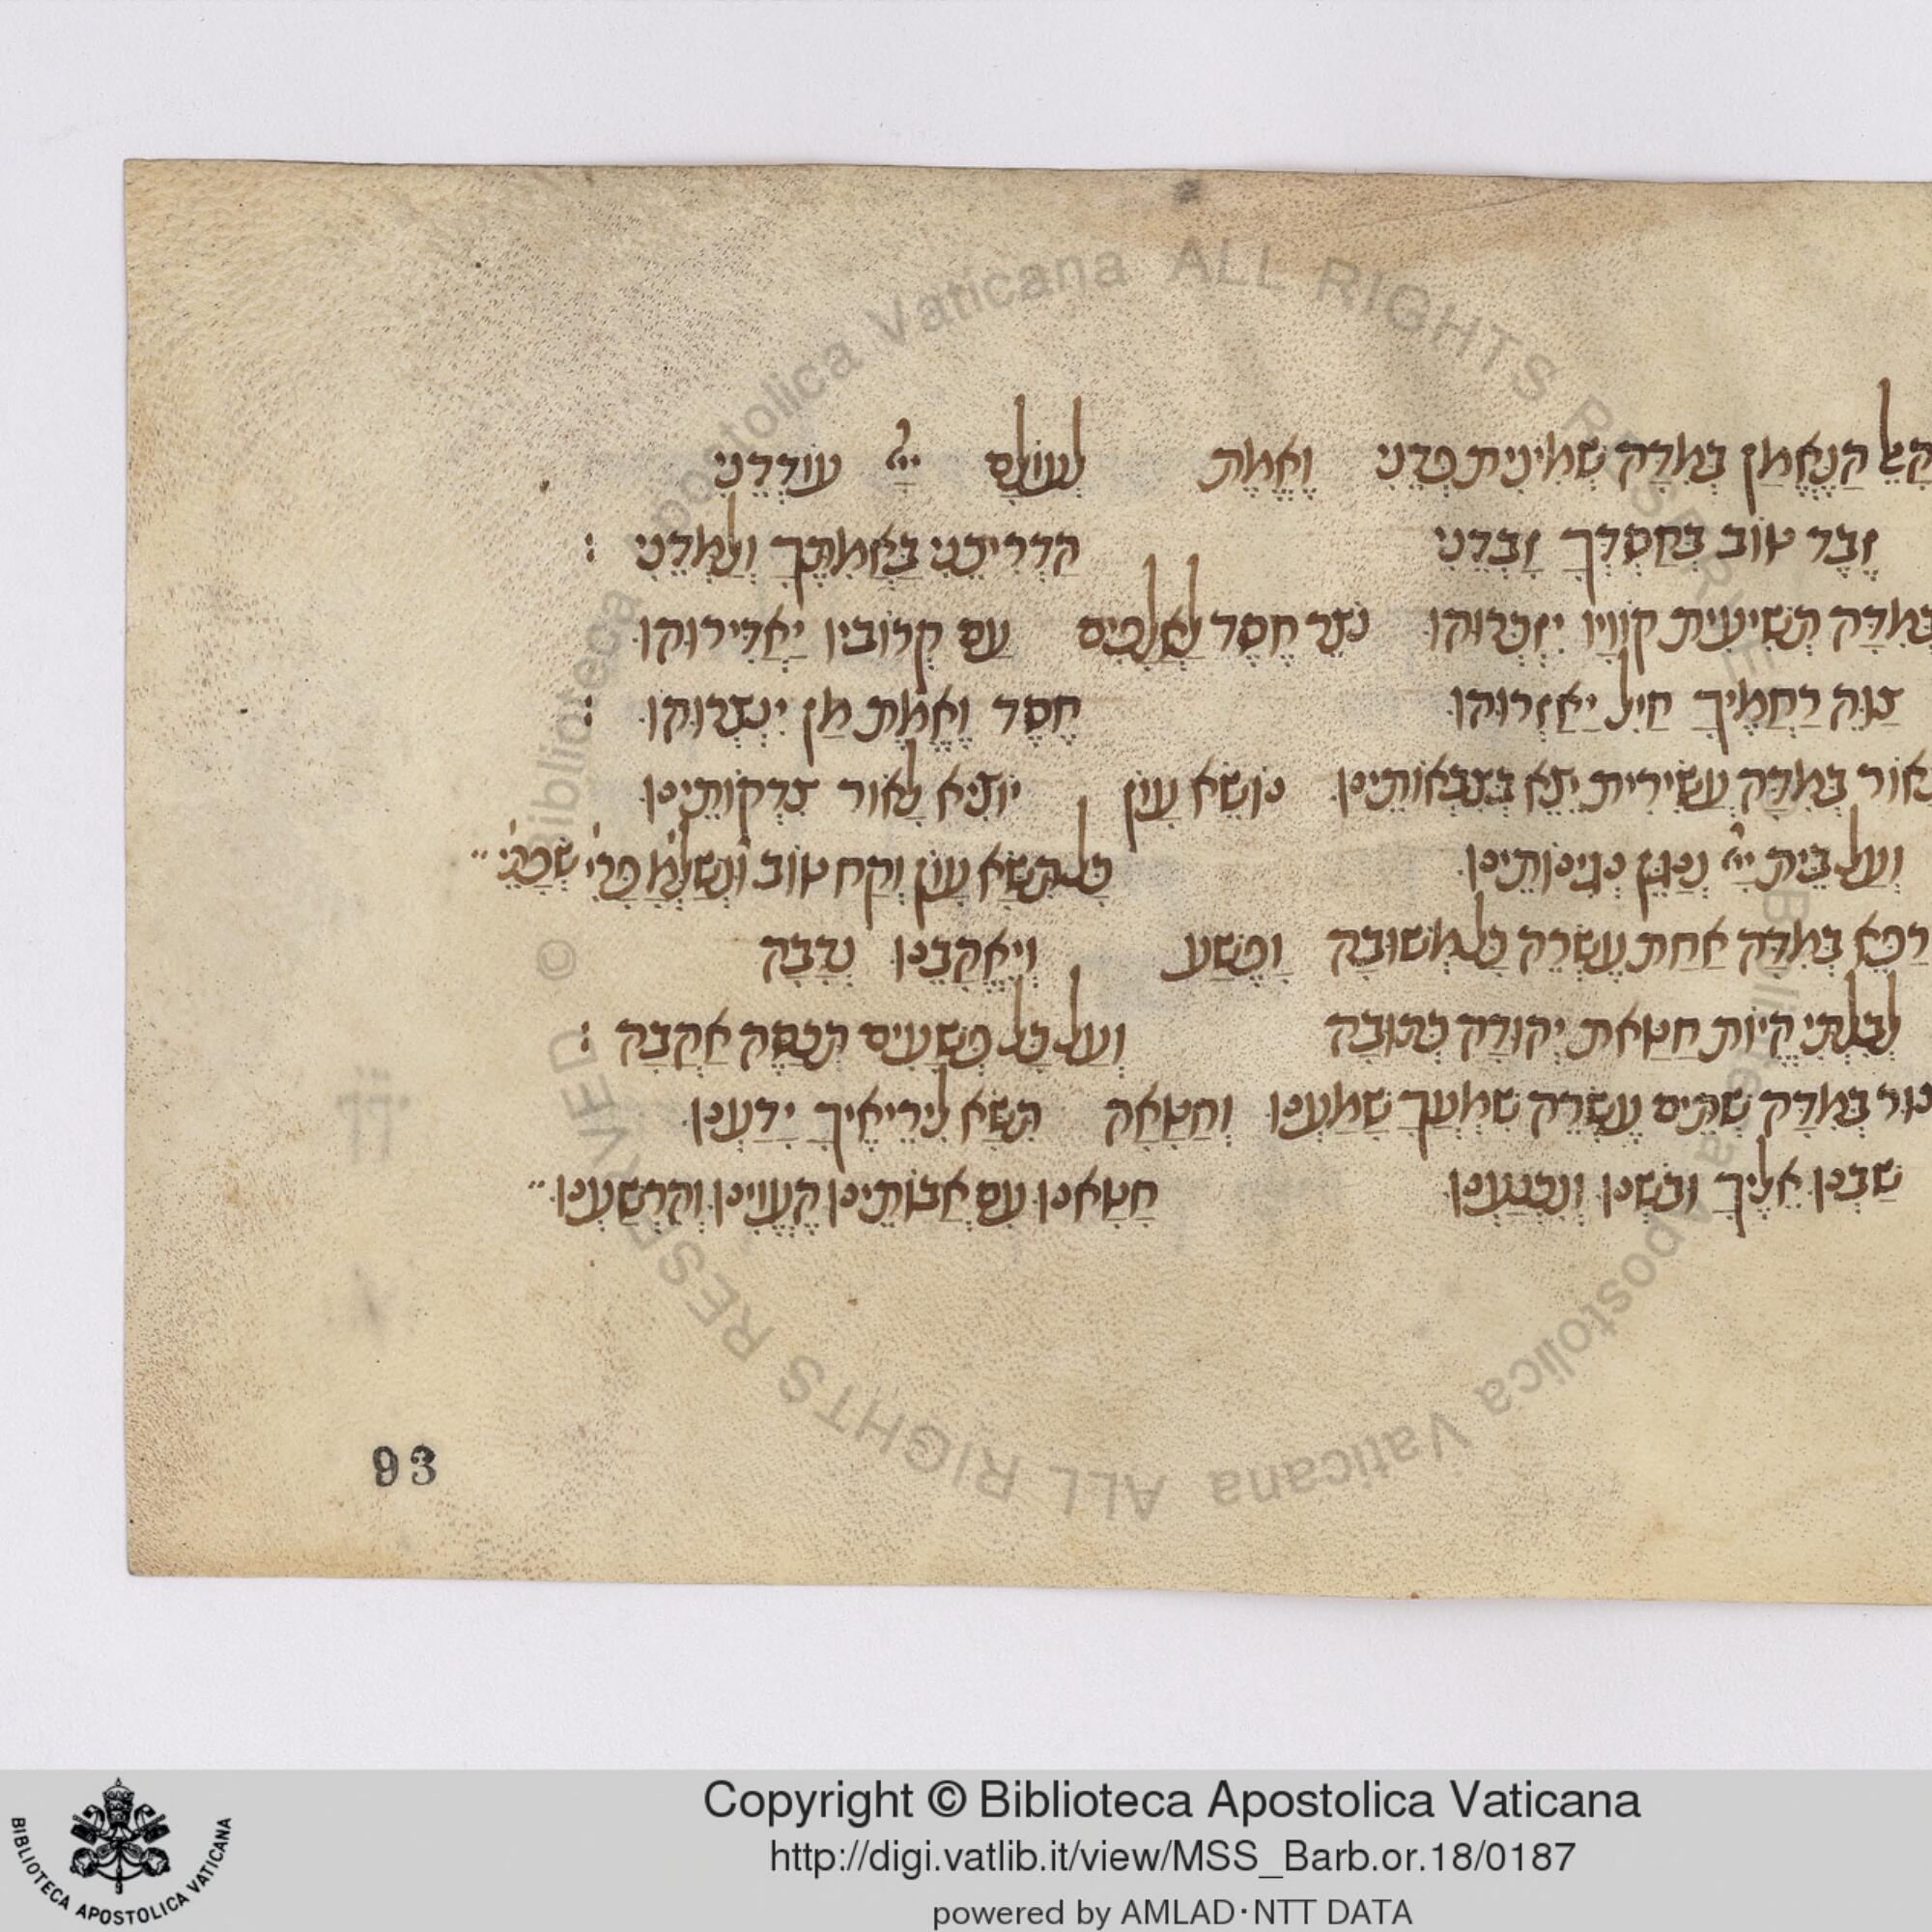 הָאֵל הַנֶּאֱמָן בְּמִדָּה שְׁמִינִית פְּדֵנִי וֶאֱמֶת לְעוֹלָם יְיָ עוֹדְדֵנִי
זֶבֶד טוֹב בְּחַסְדְּךָ זָבְדֵנִי הַדְרִיכֵנִי בַאֲמִתֶּךָ וְלַמְּדֵנִי :
בְּמִדָּה תְּשִׁיעִית קוֹוָיו יִזְכְּרוּהוּ נֹצֵר חֶסֶד לָאֲלָפִים עַם קְרוֹבָיו יַאְדִּירוּהוּ
צַוֵּה רַחֲמֶיךָ חַיִל יַאַזְרוּהוּ חֶסֶד וֶאֱמֶת מַן יִנְצְרוּהוּ :
אוֹר בְּמִדָּה עֲשִׂירִית יֵצֵא בְּצִבְאוֹתֵינוּ נוֹשֵׂא עָוֹן יוֹצִיא לָאוֹר צִדְקוֹתֵינוּ
וְעַל בֵּית יְיָ נְנַגֵּן נְגִינוֹתֵינוּ כָּל תִּשָּׂא עָוֹן וְקַח טוֹב וּנְשַׁלְּמָה פָרִי' שְׂפָתֵי'
רַפֵּא בְּמִדָּה אַחַת עֶשְׂרֵה כָּל מְשׁוּבָה וָפֶשַׁע וְיֶאֱהָבֵנוּ נְדָבָה
לְבִלְתִּי הֱיוֹת חַטַּאת יְהוּדָה כְּתוּבָה וְעַל כָּל פְּשָׁעִים תְּכַסֶּה אַהֲבָה :
בְּמִדָּה שְׁתֵּים עֶשְׂרֵה שִׁמְעֲךָ שָׁמַעְנוּ וְחַטָּאָה תִּשָּׂא לִירֵיאֶיךָ יְדַעְנוּ
שַׁבְנוּ אֵלֶיךָ וּבֹשְׁנוּ וְנִכְנַעְנוּ חָטָאנוּ עִם אֲבוֹתֵינוּ הֶעֱוִינוּ וְהִרְשַׁעְנוּ
93
© Biblioteca Apostolica Vaticana ALL RIGHTS RESERVED
© Biblioteca Apostolica Vaticana ALL RIGHTS RESERVED
BIBLIOTECA APOSTOLICA VATICANA
Copyright © Biblioteca Apostolica Vaticana
http://digi.vatlib.it/view/MSS_Barb.or.18/0187
powered by AMLAD·NTT DATA